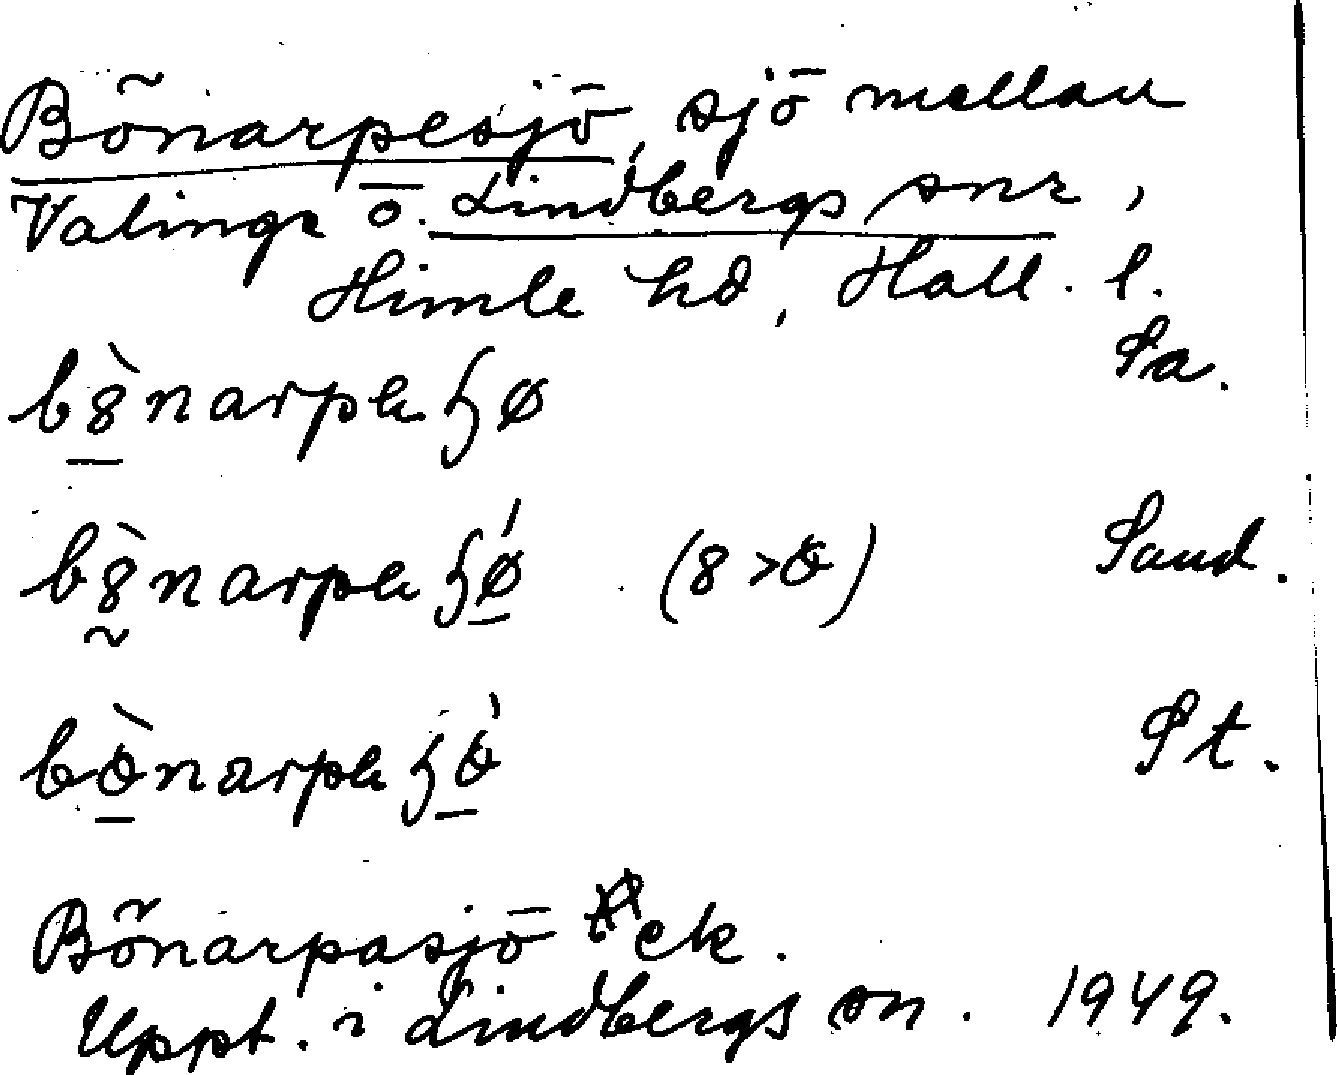 Bönarpesjö, sjö mellan
Valinge o. Lindbergs snr,
Himle hd, Hall. l.
Sa.
Sand.
St.
Bönarpasjö ek.
Uppt. i Lindbergs sn. 1949.